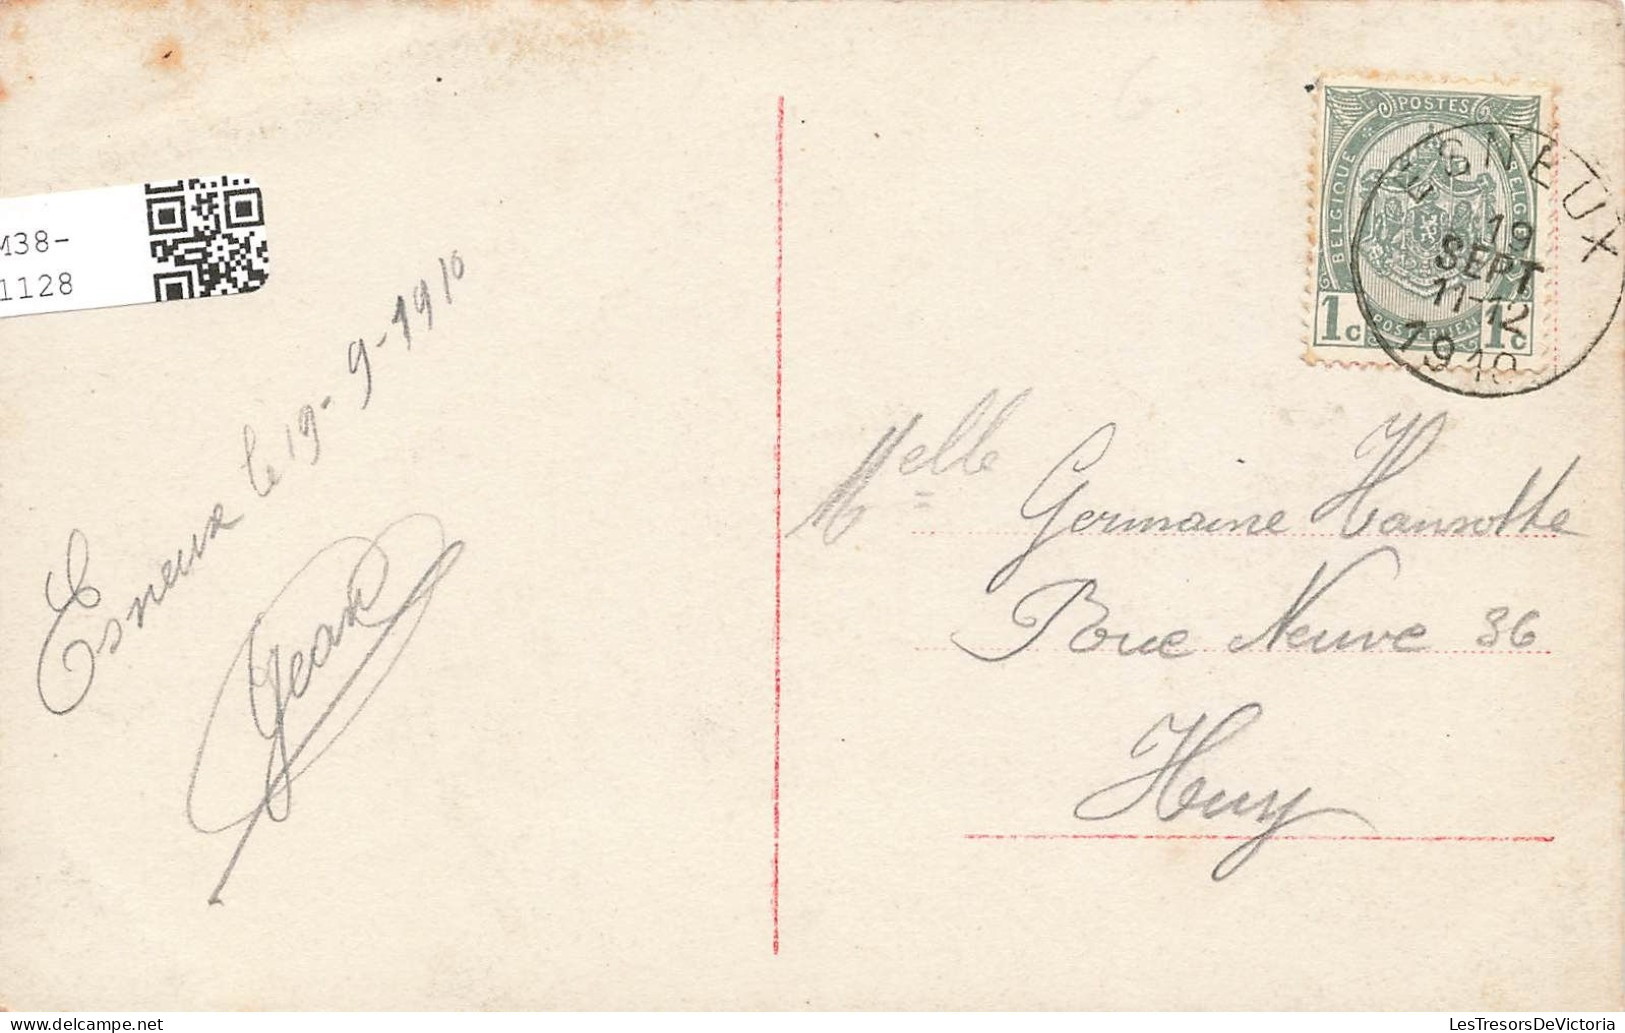 M38-
1128
Esneux le 19-9-1910
Jean
POSTES
BELGIQUE
BELG
1c POSTERIJEN 1c
ESNEUX
19
SEPT
11-12
1910
Melle Germaine Hansotte
Rue Neuve 36
Huy
LesTresorsDeVictoria.com